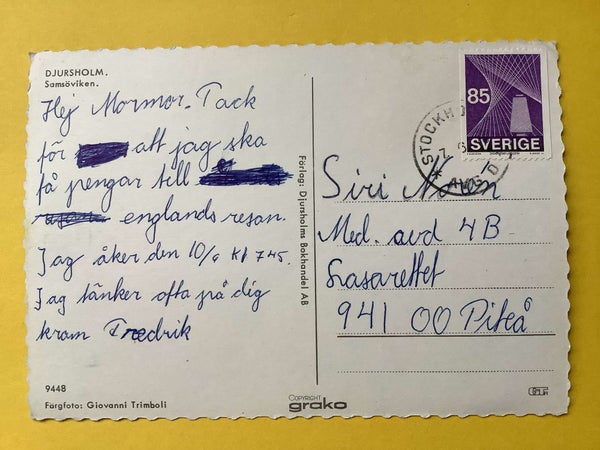 DJURSHOLM.
Samsöviken.
Hej Mormor. Tack
för att jag ska
få pengar till
englands resan.
Jag åker den 10/6 kl 745.
Jag tänker ofta på dig
kram Fredrik
9448
Färgfoto: Giovanni Trimboli
Förlag: Djursholms Bokhandel AB
COPYRIGHT
grako
85
SVERIGE
STOCKH
Siri
Med. avd 4B
Lasarettet
941 00 Piteå